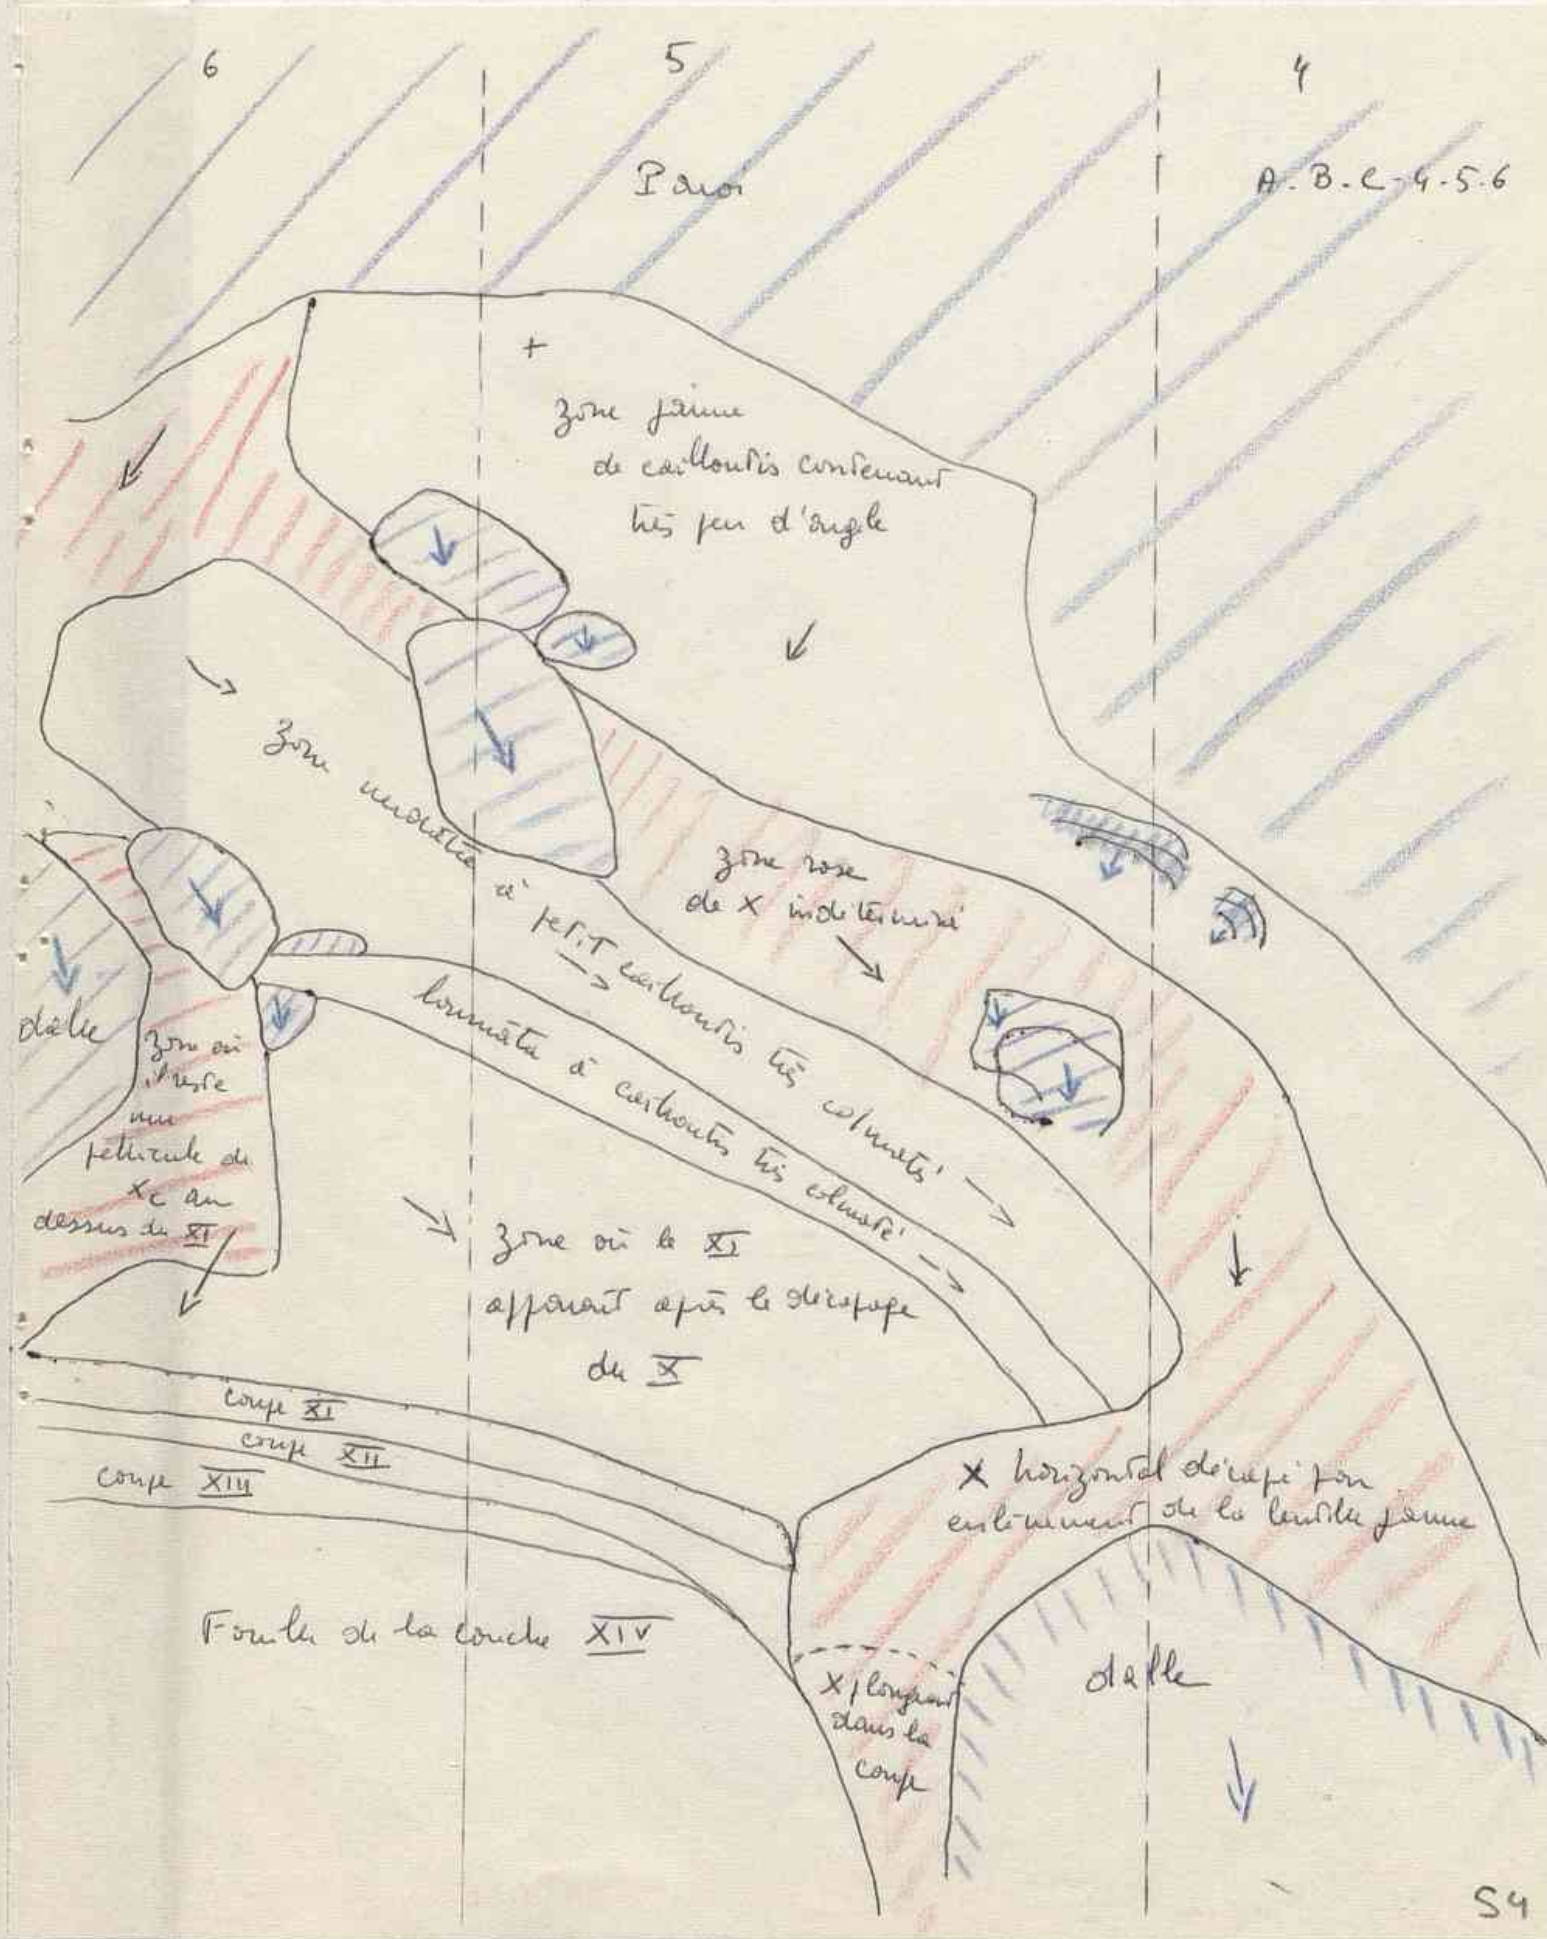 6
5
4
Paroi
A.B.C-4.5.6
+
zone jaune
de cailloutis contenant
très peu d'argile
zone à petit cailloutis très colmaté
zone rose
de X indéterminé
à cailloutis très colmaté
dalle
zone où
il reste
une
pellicule de
Xc au
dessus du XI
zone où le XI
apparait après le décapage
du X
coupe XI
coupe XII
coupe XIII
X horizontal décapé par
enlèvement de la lentille jaune
Fouille de la couche XIV
X plongeant
dans la
coupe
dalle
S4